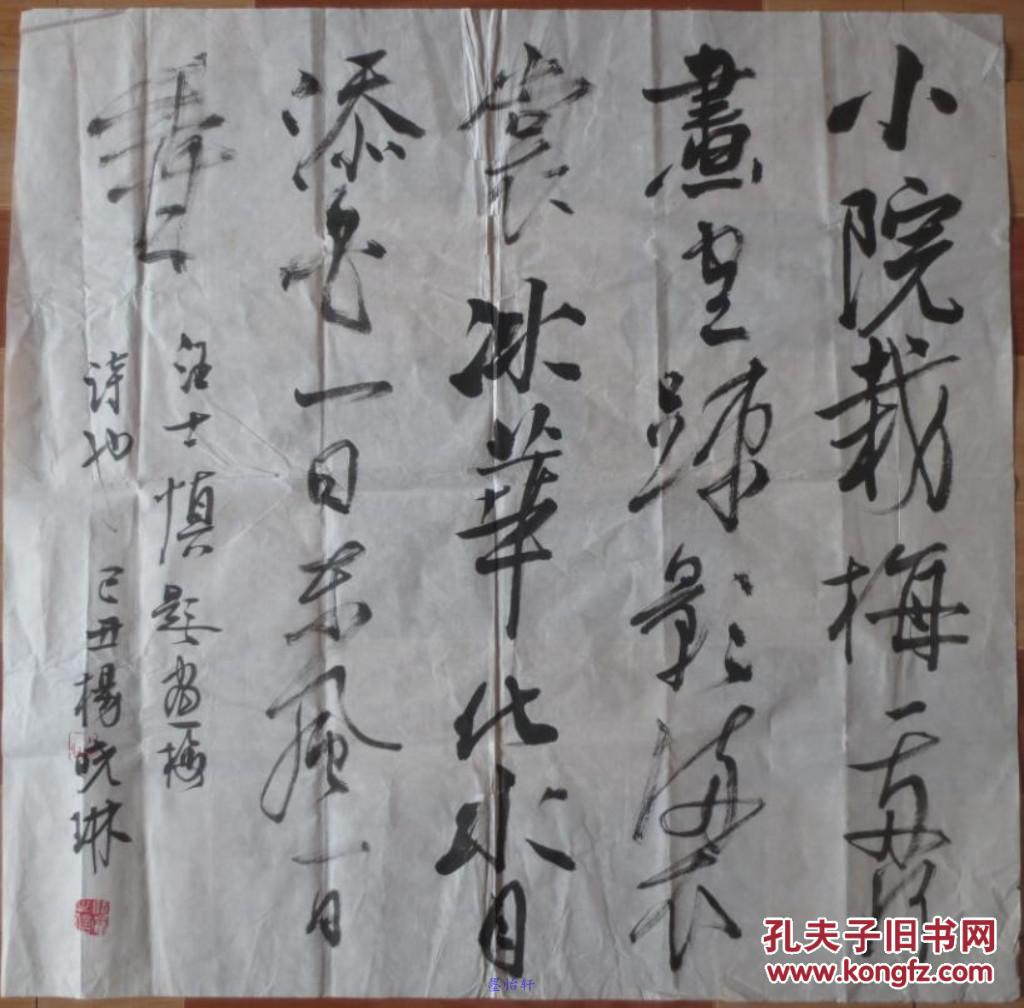 小院栽梅一两行
畫空踈影满衣
裳冰華化水月
添白一日东風一日
汪士慎题画梅
詩也 己丑楊晓琳
孔夫子旧书网
www.kongfz.com
墨怡轩